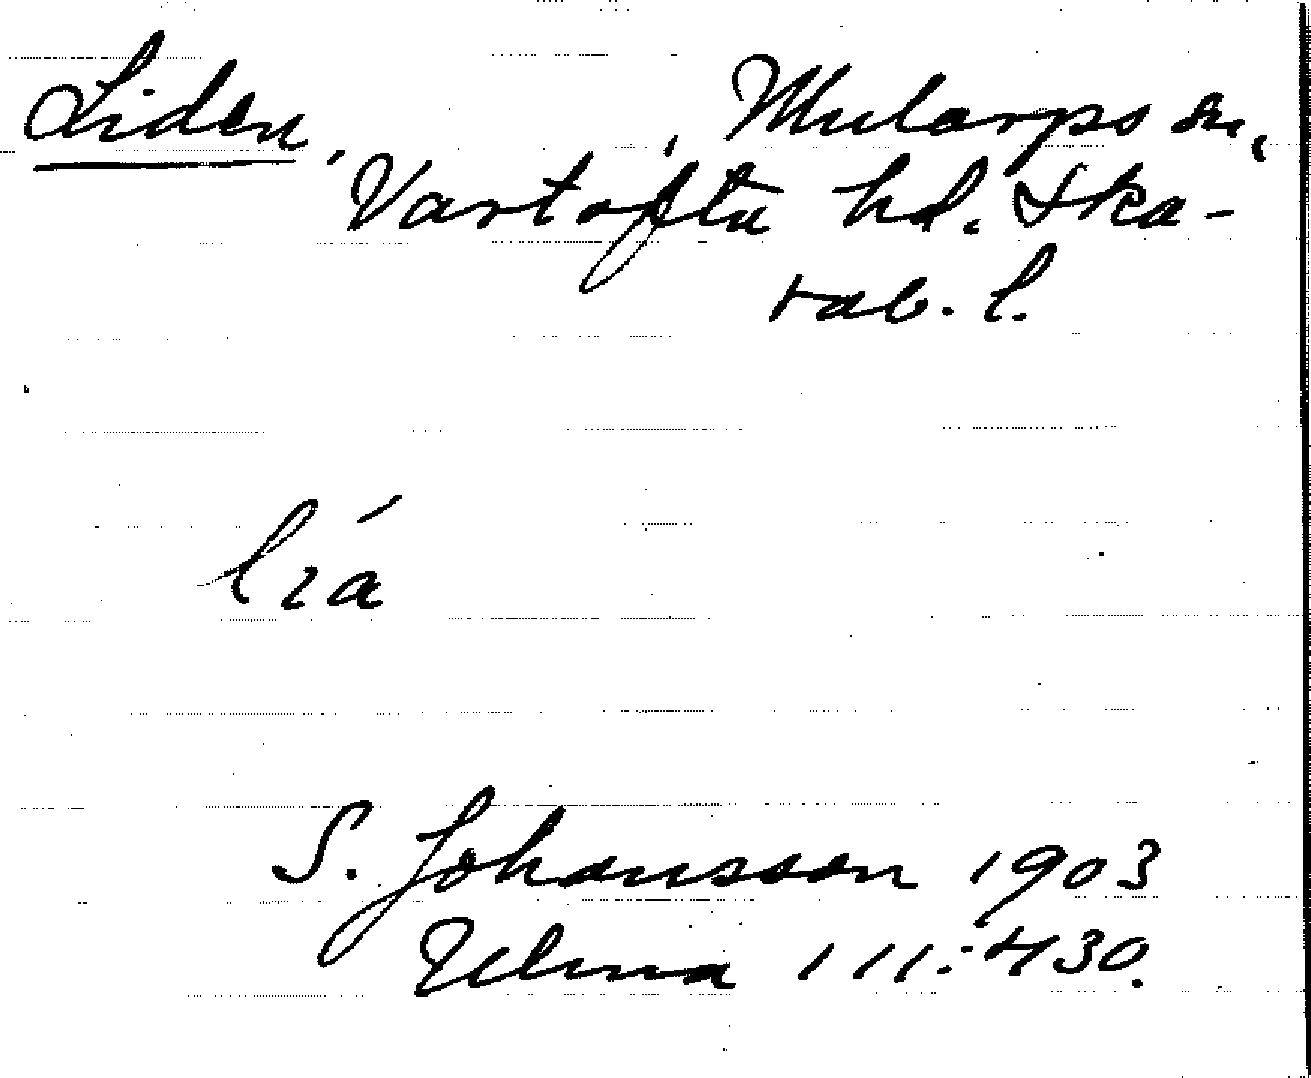 Liden, , Mularps sn,
Vartofta hd. Ska-
rab. l.
lıá
S. Johansson 1903
Ulma 111:430.